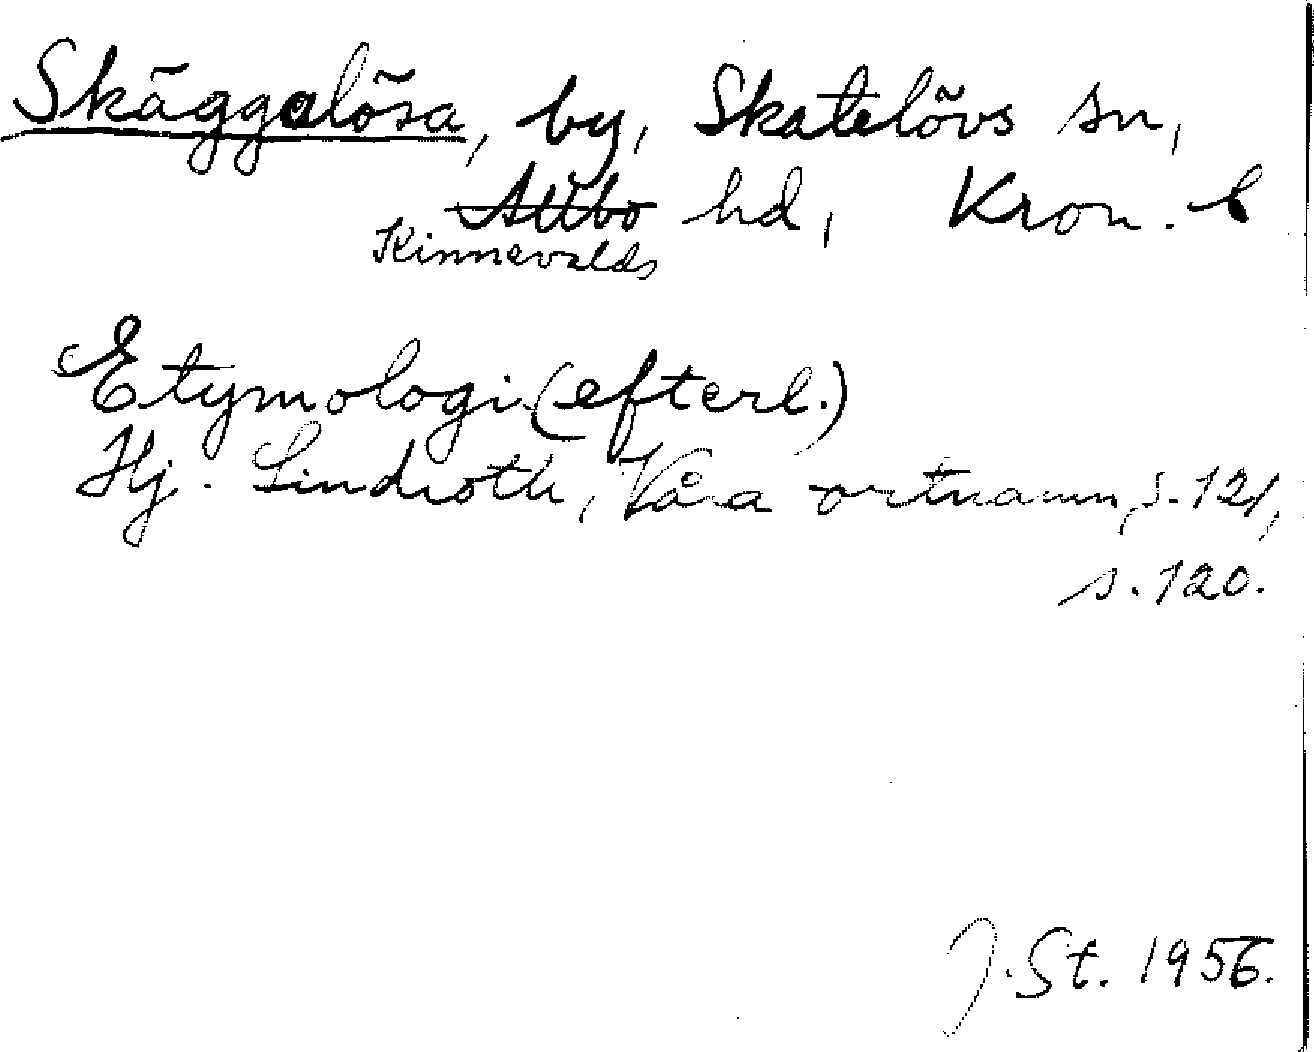 Skäggalösa, by, Skatelövs sn,
Allbo hd, Kron. l
Kinnevalds
Etymologi (efterl.)
Hj. Lindroth, Våra ortnamn, s. 121,
s. 120.
J. St. 1956.